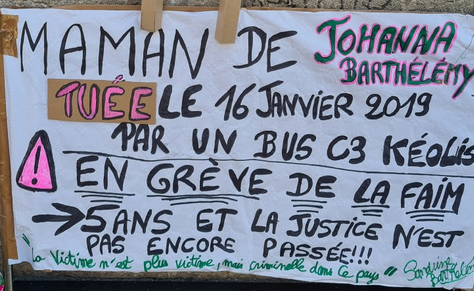 MAMAN DE JOHANNA
BARTHÉLÉMY
TUÉE LE 16 JANVIER 2019
PAR UN BUS C3 KÉOLIS
EN GRÈVE DE LA FAIM
→ 5 ANS ET LA JUSTICE N'EST
PAS ENCORE PASSÉE!!!
"La victime n'est plus victime, mais criminelle dans ce pays"